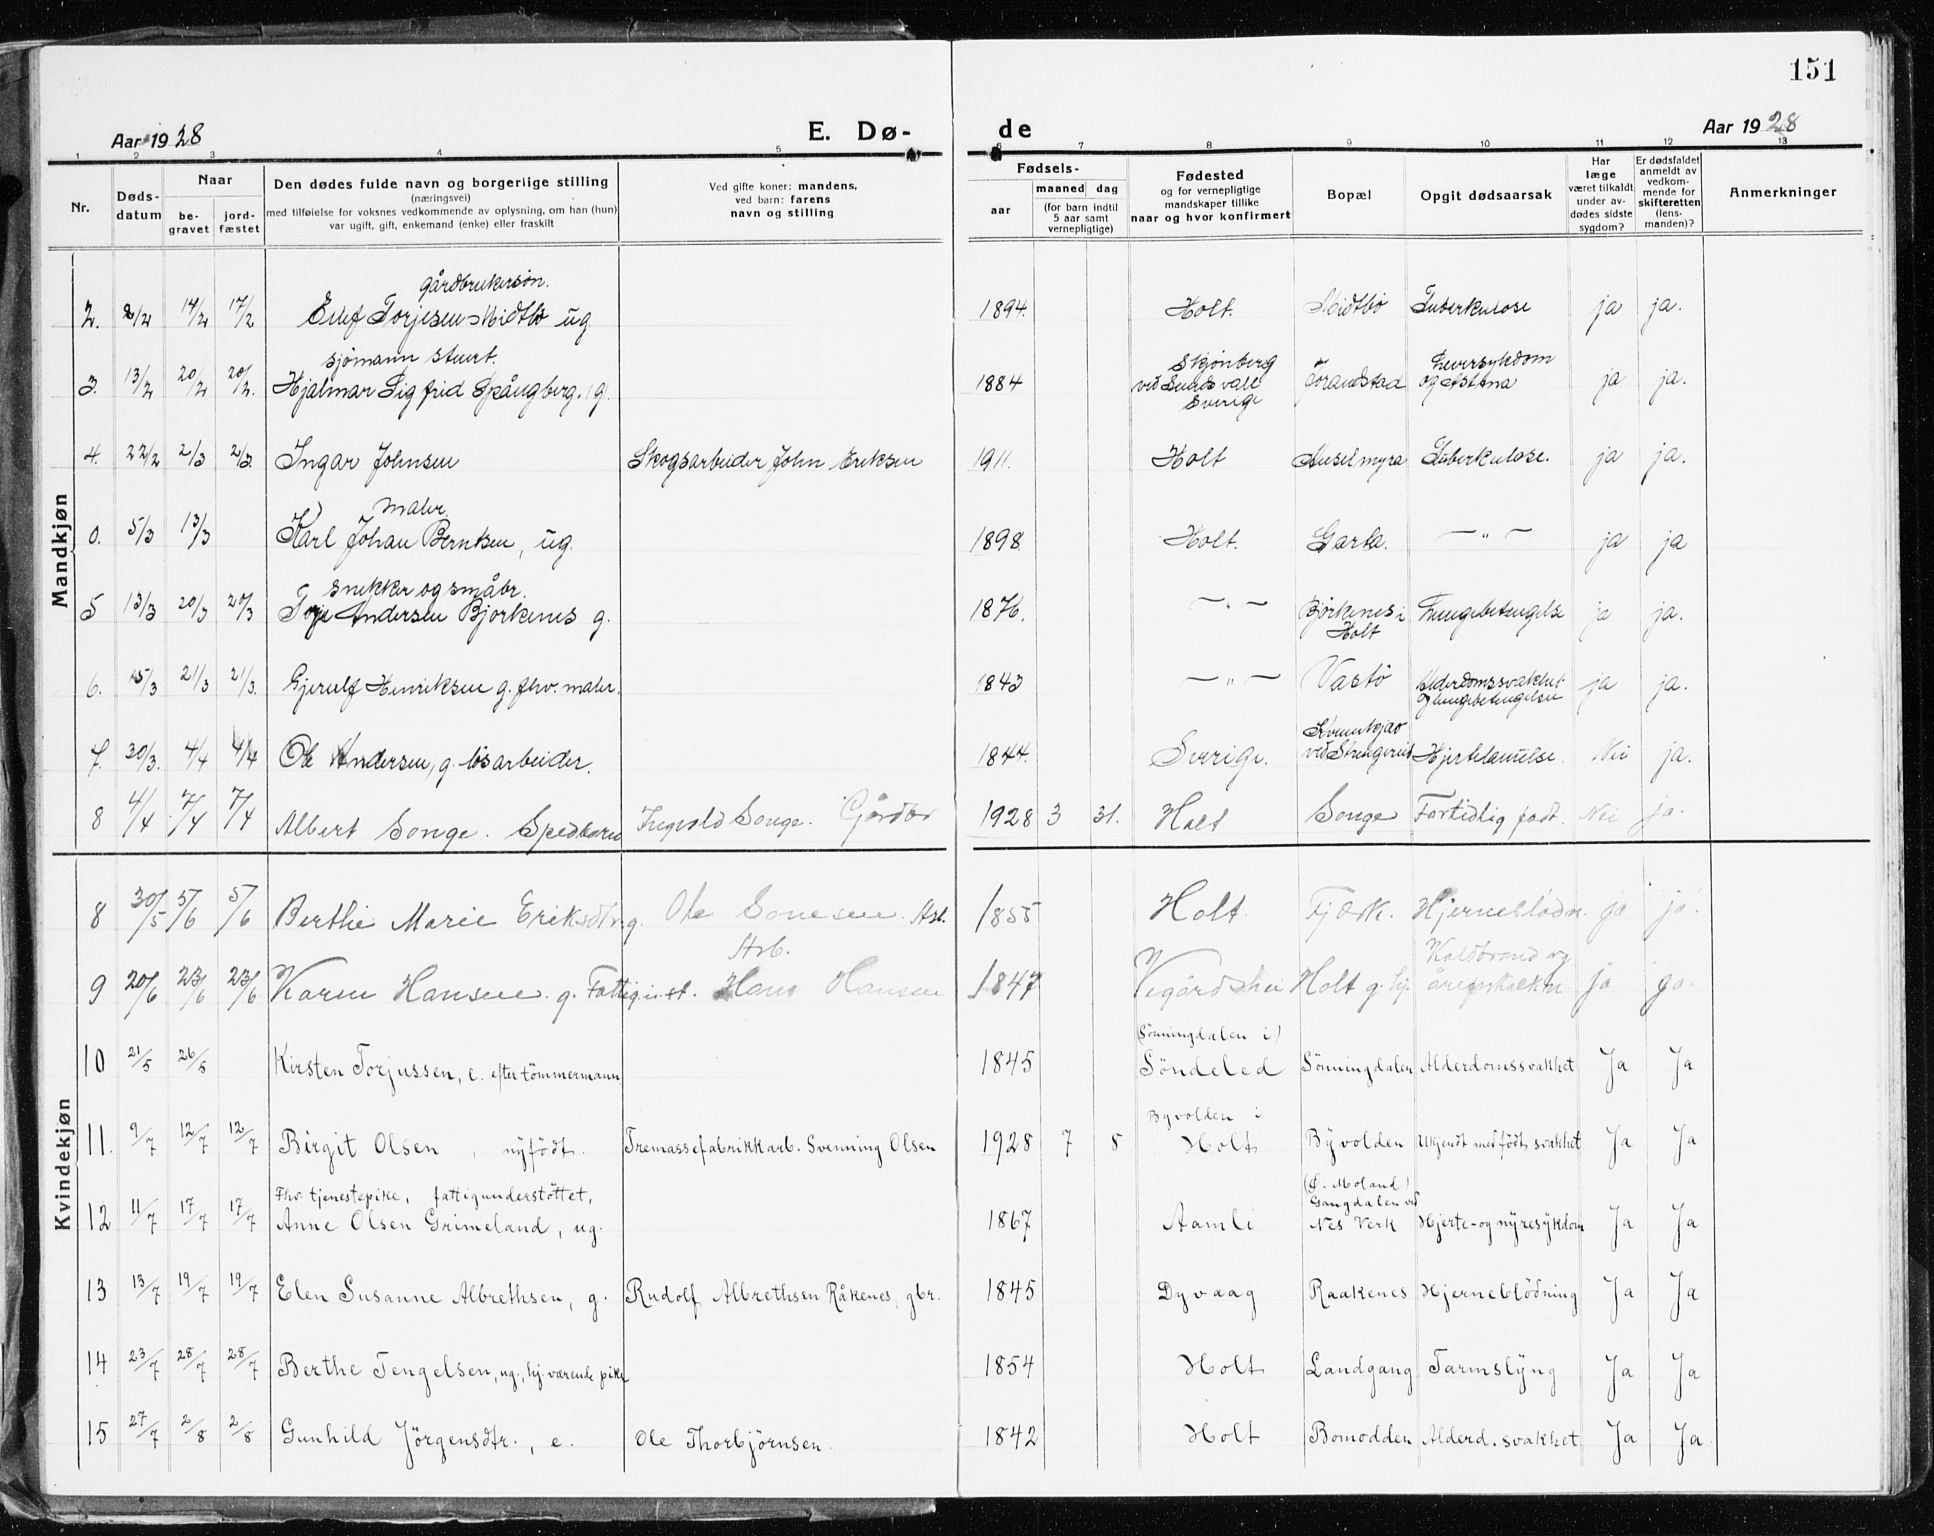 151
Aar 1928 E. Dø- de Aar 1928
1 2 3 4 5 6 7 8 9 10 11 12 13
Nr.
Døds-datum
Naar
be-gravet
jord-fæstet
Den dødes fulde navn og borgerlige stilling
(næringsvei)
med tilføielse for voksnes vedkommende av oplysning, om han (hun)
var ugift, gift, enkemand (enke) eller fraskilt
Ved gifte koner: mandens,
ved barn: farens
navn og stilling
Fødsels-
aar
maaned dag
(for barn indtil
5 aar samt
vernepligtige)
Fødested
og for vernepligtige
mandskaper tillike
naar og hvor konfirmert
Bopæl
Opgit dødsaarsak
Har
læge
været tilkaldt
under av-
dødes sidste
sygdom?
Er dødsfaldet
anmeldt av
vedkom-
mende for
skifteretten
(lens-
manden)?
Anmerkninger
Mandkjøn
gårdbrukersøn.
2. 8/2 14/2 17/2 Eilef Torjesen Midtbø ug. 1894. Holt. Midtbø Tuberkulose ja ja.
sjømann stuert. Skjönberg Leversykdom
3. 13/2 20/2 20/2. Hjalmar Sigfrid Spångberg. g. 1884 ved Sundsvall og Astma ja ja.
Sverige
4. 22/2 2/3 2/3. Ingar Johnsen Skogsarbeider John Eriksen 1911. Holt Tuberkulose. ja ja.
maler.
0. 5/3 13/3 Karl Johan Berntsen, ug. 1898 Holt. Garta. — " — ja ja
snekker og småbr.
5 13/3 20/3 20/3 Torje Andersen Bjørkenes g. 1876. — " — Bjørkenes i Lungebetengelse ja ja.
Holt
6. 15/3 21/3 21/3. Gjerulf Henriksen g. fhv. maler. 1843 — " — Vastø Alderdomssvakhet ja ja.
og lungebetengelse
7. 30/3. 4/4 4/4 Ole Andersen, g. løsarbeider. 1844. Sverige. ved Strengereid Hjertelammelse. Nei ja.
8 4/4 7/4 7/4 Albert Songe. Spedbarn Ingvald Songe. Gårdbr 1928 3 31. Holt Songe Fortidlig født. Nei ja.
Kvindekjøn
8 30/5 5/6 5/6 Berthe Marie Eriksdtr. g. Ole Sonesen. Arb. 1855 Holt. Hjerneblødn. ja ja.
Arb. Koldbrand og
9 20/6 23/6 23/6 Karen Hansen. g. Fattigunst. Hans Hansen 1847 Vegårdshei Holt g. hj. ja ja.
(Sönningdalen i)
10 21/5 26/5 Kirsten Torjussen, e. efter tömmermann 1845 Söndeled Sönningdalen Alderdomssvakhet Ja Ja
Byvolden i
11. 9/7 12/7 12/7 Birgit Olsen, nyfödt. Tremassefabrikkarb. Svenning Olsen 1928 7 8 Holt Byvolden Ukjendt medfödt svakhet Ja Ja
Fhv. tjenestepike, fattigunderstöttet, (Ö. Moland)
Gangdalen ved
12 11/7 17/7 17/7 Anne Olsen Grimeland, ug. 1867 Aamli Nes Verk Hjerte- og nyresykdom Ja Ja
13 13/7 19/7 19/7 Elen Susanne Albrethsen, g. Rudolf Albrethsen Råkenes, gbr. 1845 Dyvaag Raakenes Hjerneblödning Ja Ja
14 23/7 28/7 28/7 Berthe Tengelsen, ug., hj. værende pike 1854 Holt Landgang Tarmslyng Ja Ja
15 27/7 2/8 2/8 Gunhild Jörgensdtr., e. Ole Thorbjörnsen. 1842 Holt Bomodden Alderd. svakhet Ja Ja